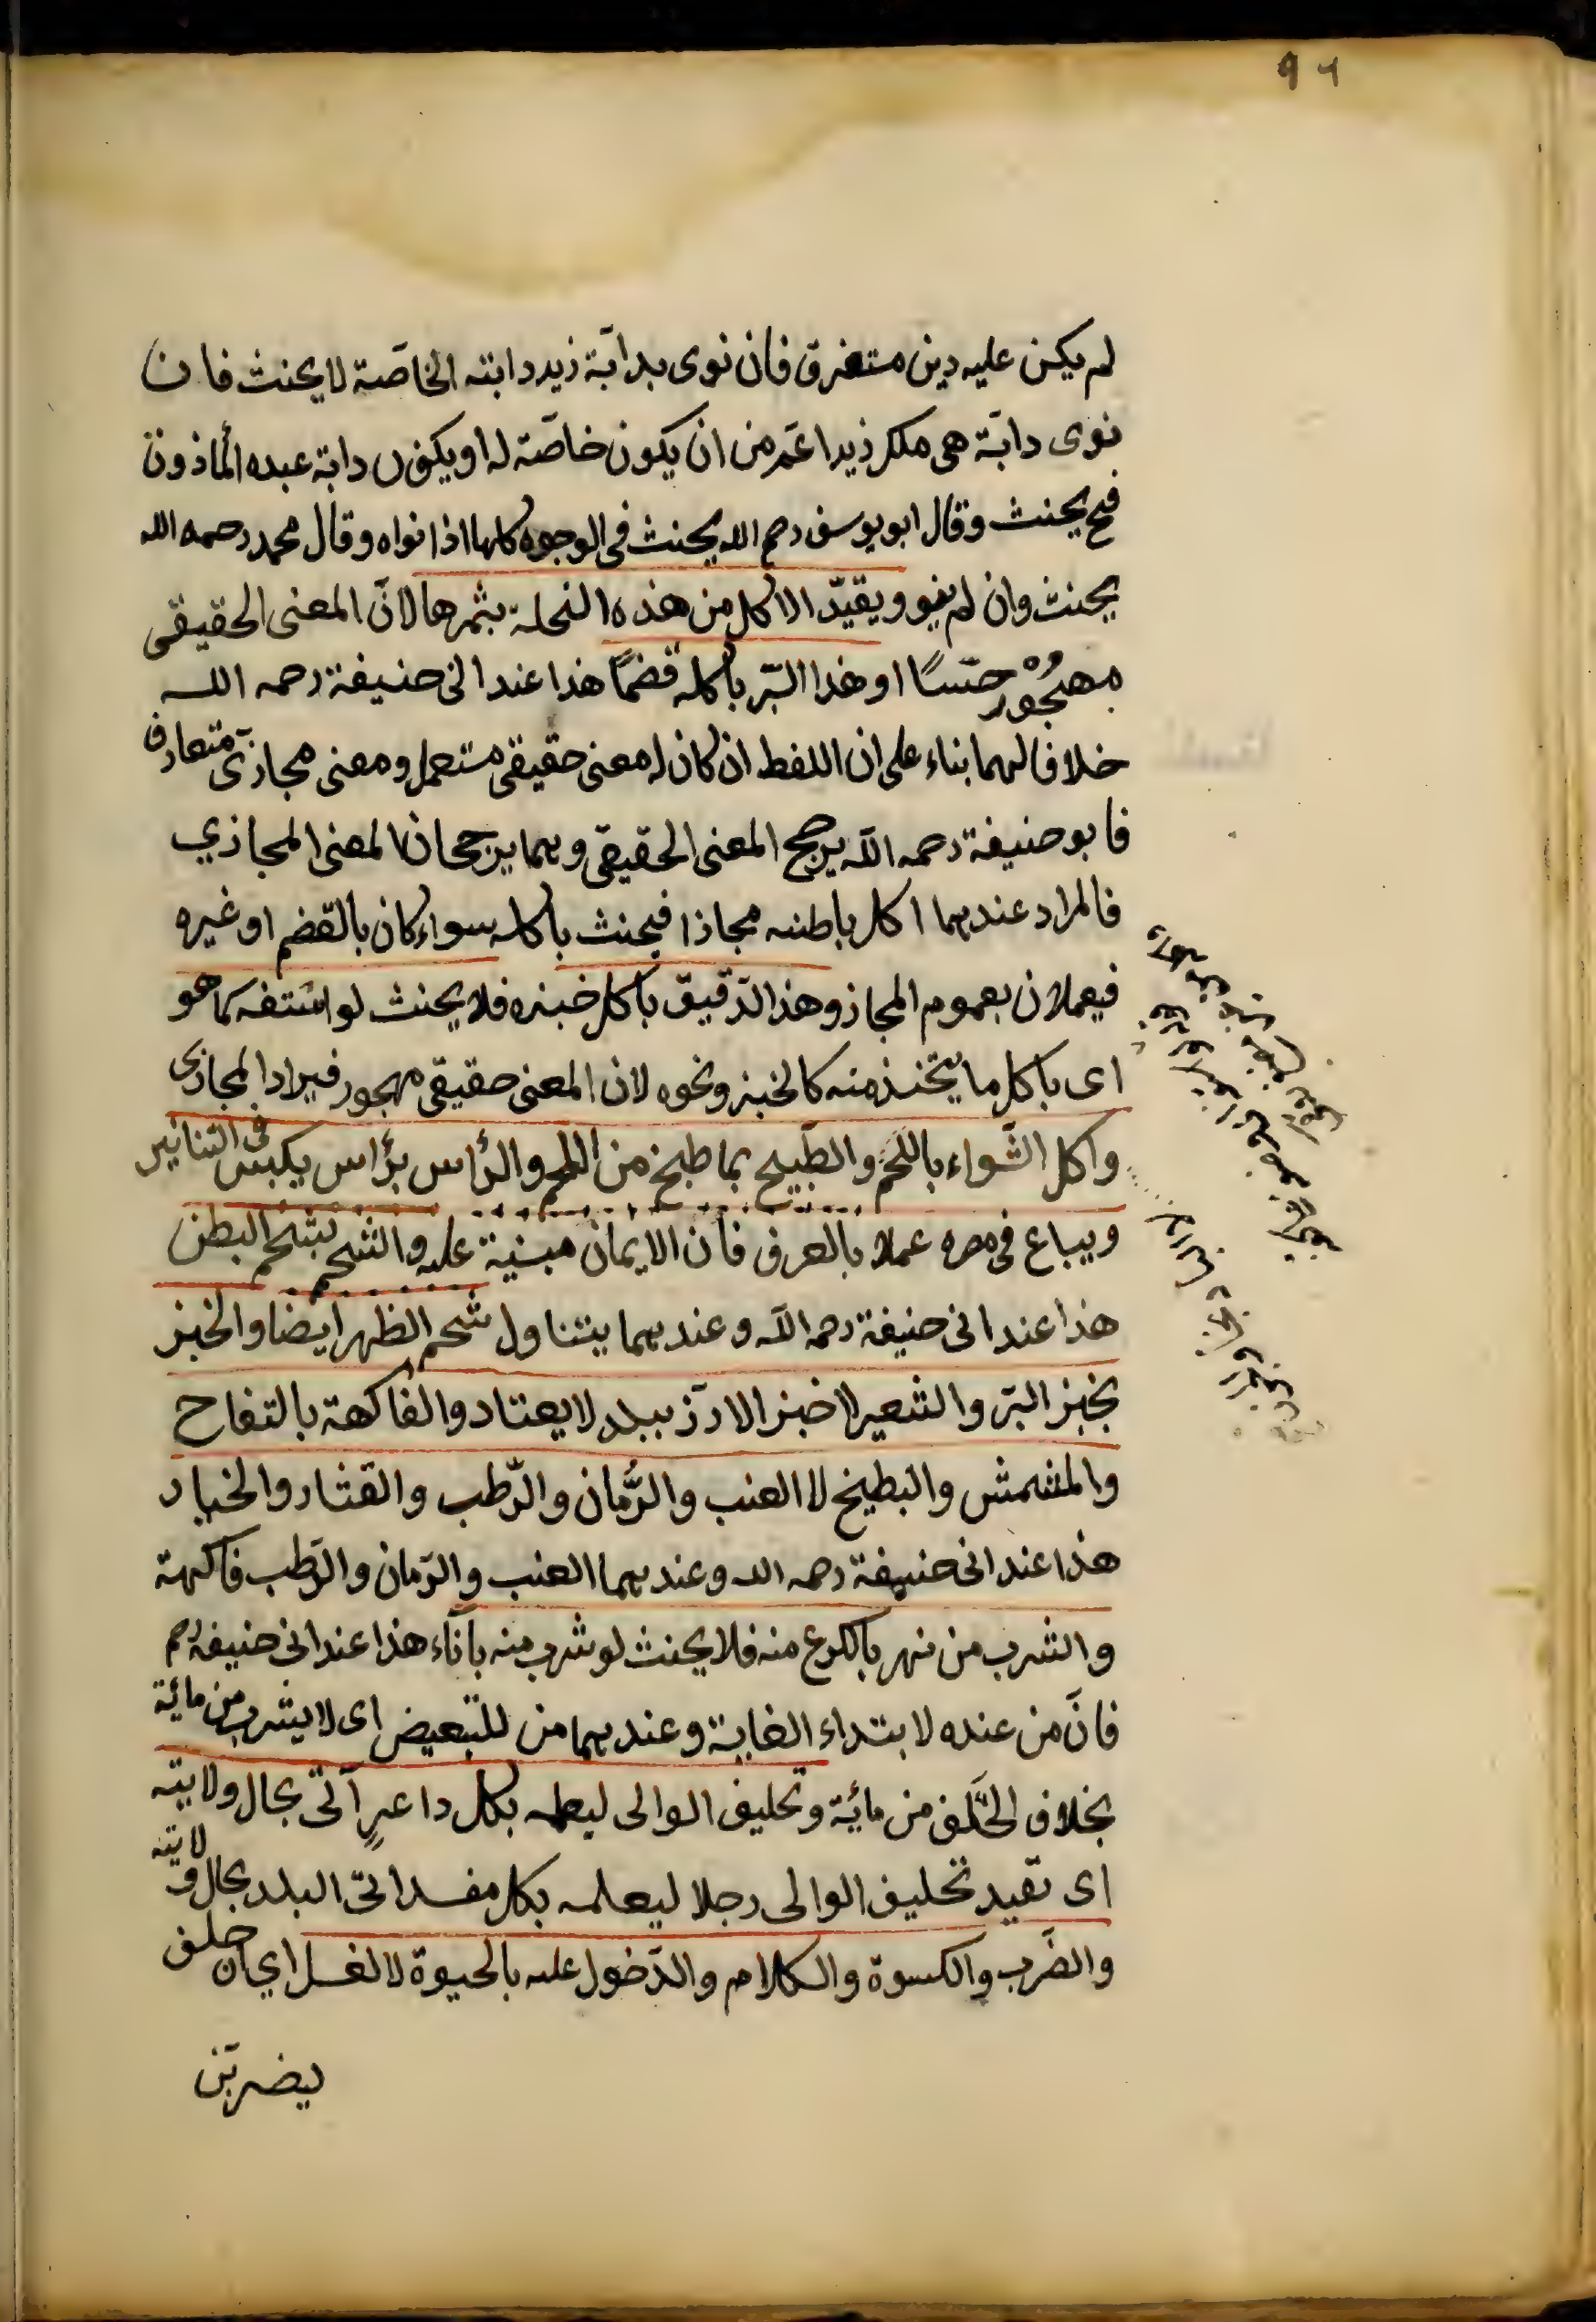 ٩٦
لم يكن عليه دين مستغرق فان نوى بدابّة زيد دابته الخاصّة لا يحنث فان
نوى دابّة هى ملك زيد اعمّ من ان يكون خاصّة له او يكون دابة عبده المأذون
فح يحنث وقال ابو يوسف رحمه الله يحنث فى الوجوه كلها اذا نواه وقال محمد رحمه الله
يحنث وان لم ينو ويقيّد الاكل من هذه النخلة بثمرها لانّ المعنى الحقيقى
مهجُوْر حسّا او هذا البرّ باكله قضمًا هذا عند ابى حنيفة رحمه الله
خلافا لهما بناء على ان اللفظ ان كان له معنى حقيقى مستعمل ومعنى مجازىّ متعارف
فابو حنيفة رحمه الله يرجح المعنى الحقيقى وهما يرجحان المعنى المجازي
فالمراد عندهما اكل باطنه مجازا فيحنث باكله سواء كان بالقضم او غيره
فيعملان بعموم المجاز وهذا الدّقيق باكل خبزه فلا يحنث لو استفه كما هو
اى باكل ما يتخذ منه كالخبز ونحوه لان المعنى حقيقى مهجور فيراد المجازى
واكل الشّواء باللحم والطّبيخ بما طبخ من اللحم والرّأس برأس يكبس فى التنانير
ويباع فى مصره عملا بالعرف فانّ الايمان مبنية عليه والشحم بشحم البطن
هذا عند ابى حنيفة رحمه الله وعندهما يتناول شحم الظهر ايضا والخبز
بخبز البرّ والشعير لا خبز الارز ببلد لا يعتاد والفاكهة بالتفاح
والمشمش والبطيخ لا العنب والرُّمان والرّطب والقثاء والخيار
هذا عند ابى حنيفة رحمه الله وعندهما العنب والرّمان والرّطب فاكهة
والشرب من نهر بالكرع منه فلا يحنث لو شرب منه باناء هذا عند ابى حنيفة رحم
فانّ من عنده لابتداء الغاية وعندهما من للتبعيض اى لا يشرب من مائه
بخلاف الحَلف من مائه وتحليف الوالى ليعلمه بكل داعرٍ اتى بحال ولايته
اى تقيد تحليف الوالى رجلا ليعلمه بكل مفسد اتى البلد بحال ولايته
والضّرب والكسوة والكلام والدّخول عليه بالحيوة لا الغسل اي ان حلف
ليضربن